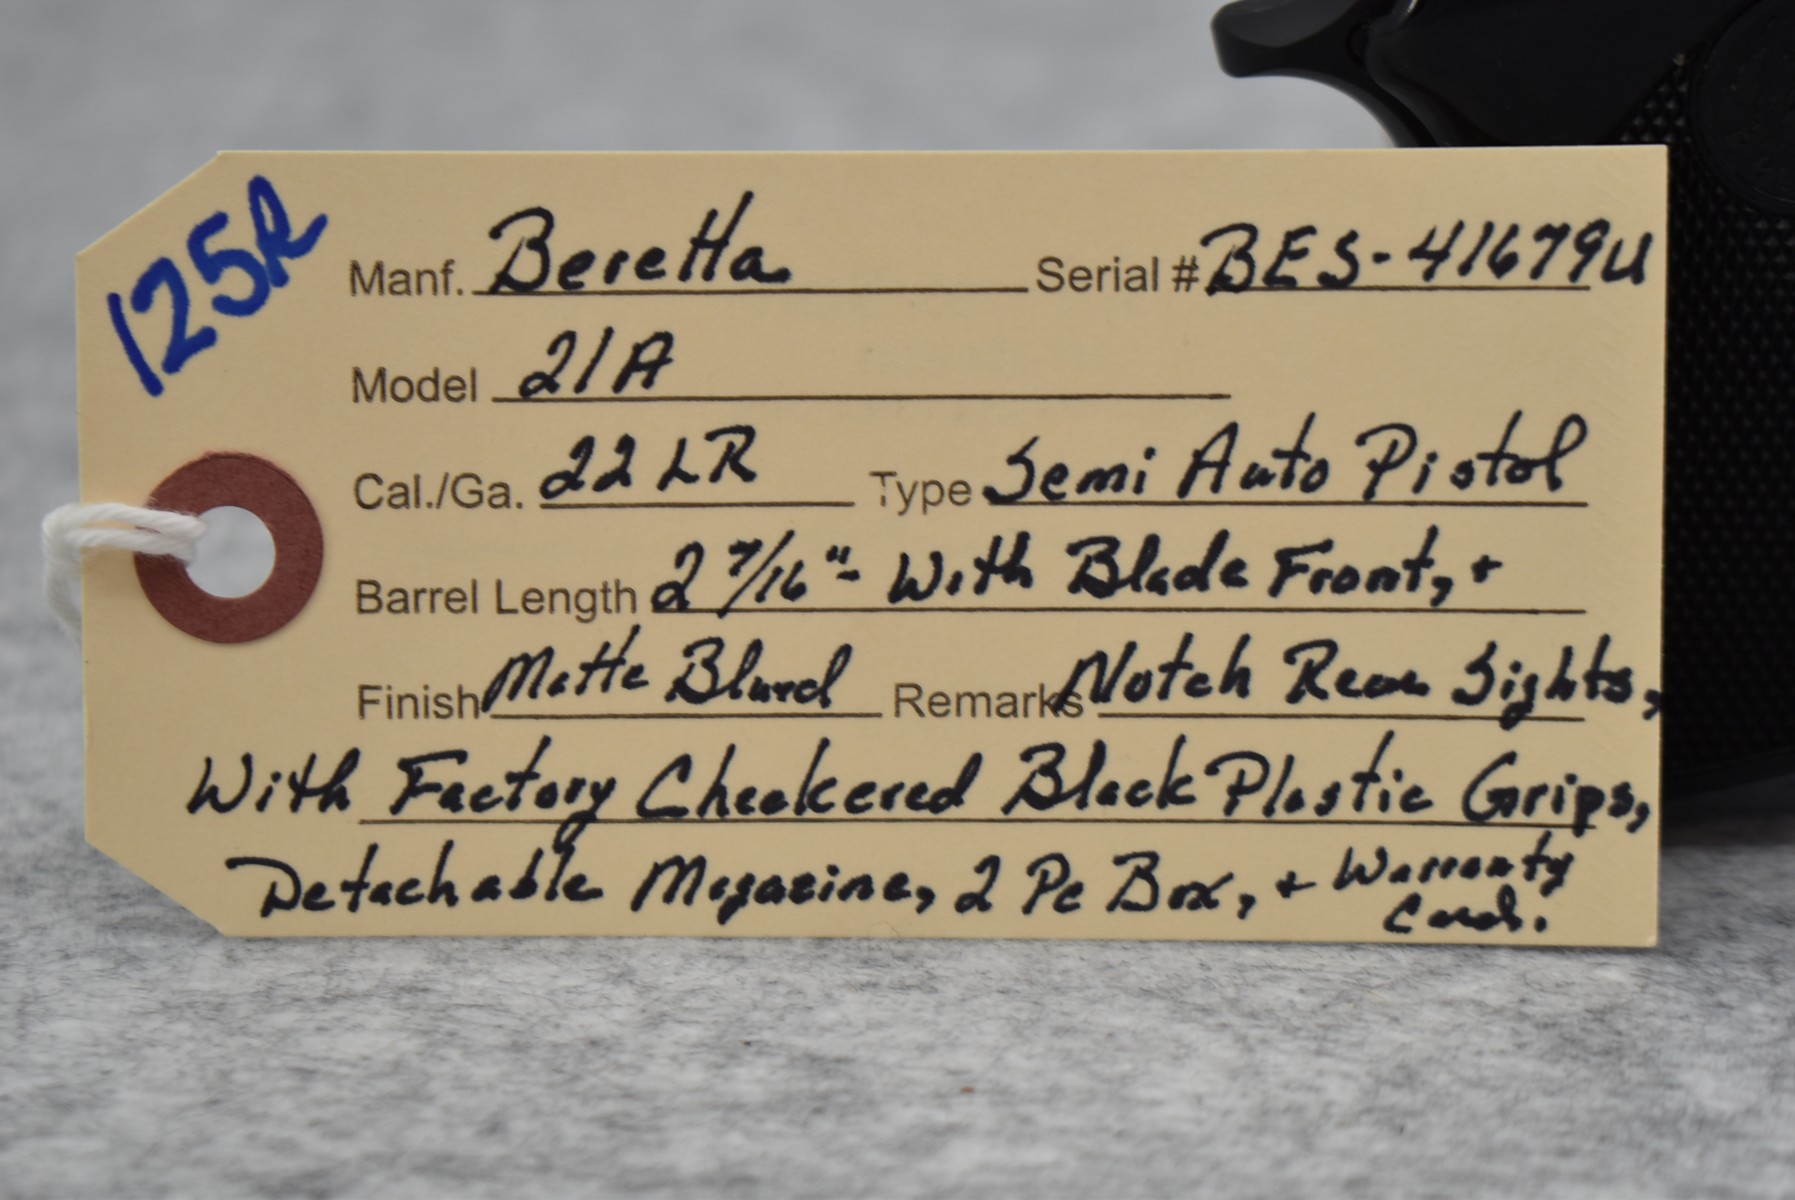 125R
Manf. Beretta Serial # BES-41679U
Model 21A
Cal./Ga. 22 LR Type Semi Auto Pistol
Barrel Length 2 7/16"- With Blade Front, +
Finish Matte Blued Remarks Notch Rear Sights,
With Factory Checkered Black Plastic Grips,
Detachable Magazine, 2 Pc Box, + Warranty
Card.